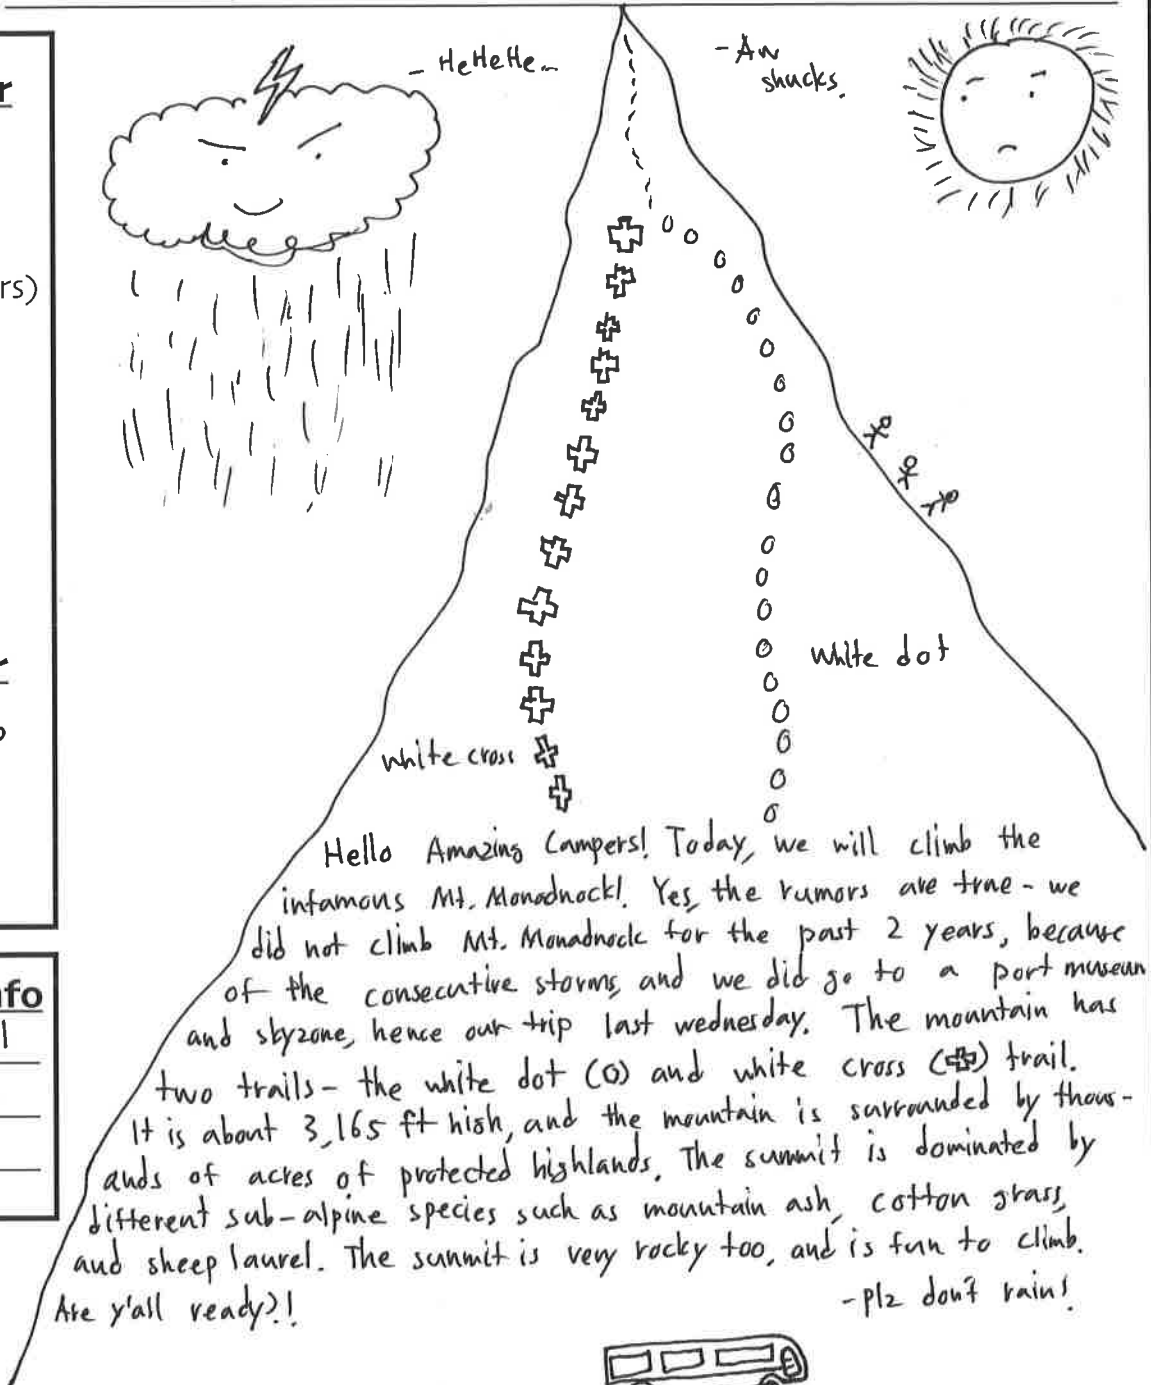 r
- HeHeHe~
- Aw
shucks.
rs)
white dot
white cross
Hello Amazing Campers! Today, we will climb the
infamous Mt. Monodnock! Yes, the rumors are true - we
did not climb Mt. Monadnock for the past 2 years, because
of the consecutive storms, and we did go to a port museum
and skyzone, hence our trip last wednesday. The mountain has
two trails - the white dot (O) and white cross (✚) trail.
It is about 3,165 ft high, and the mountain is surrounded by thous-
ands of acres of protected highlands. The summit is dominated by
different sub-alpine species such as mountain ash, cotton grass,
and sheep laurel. The summit is very rocky too, and is fun to climb.
Are y'all ready?!
- plz don't rain!
nfo
l